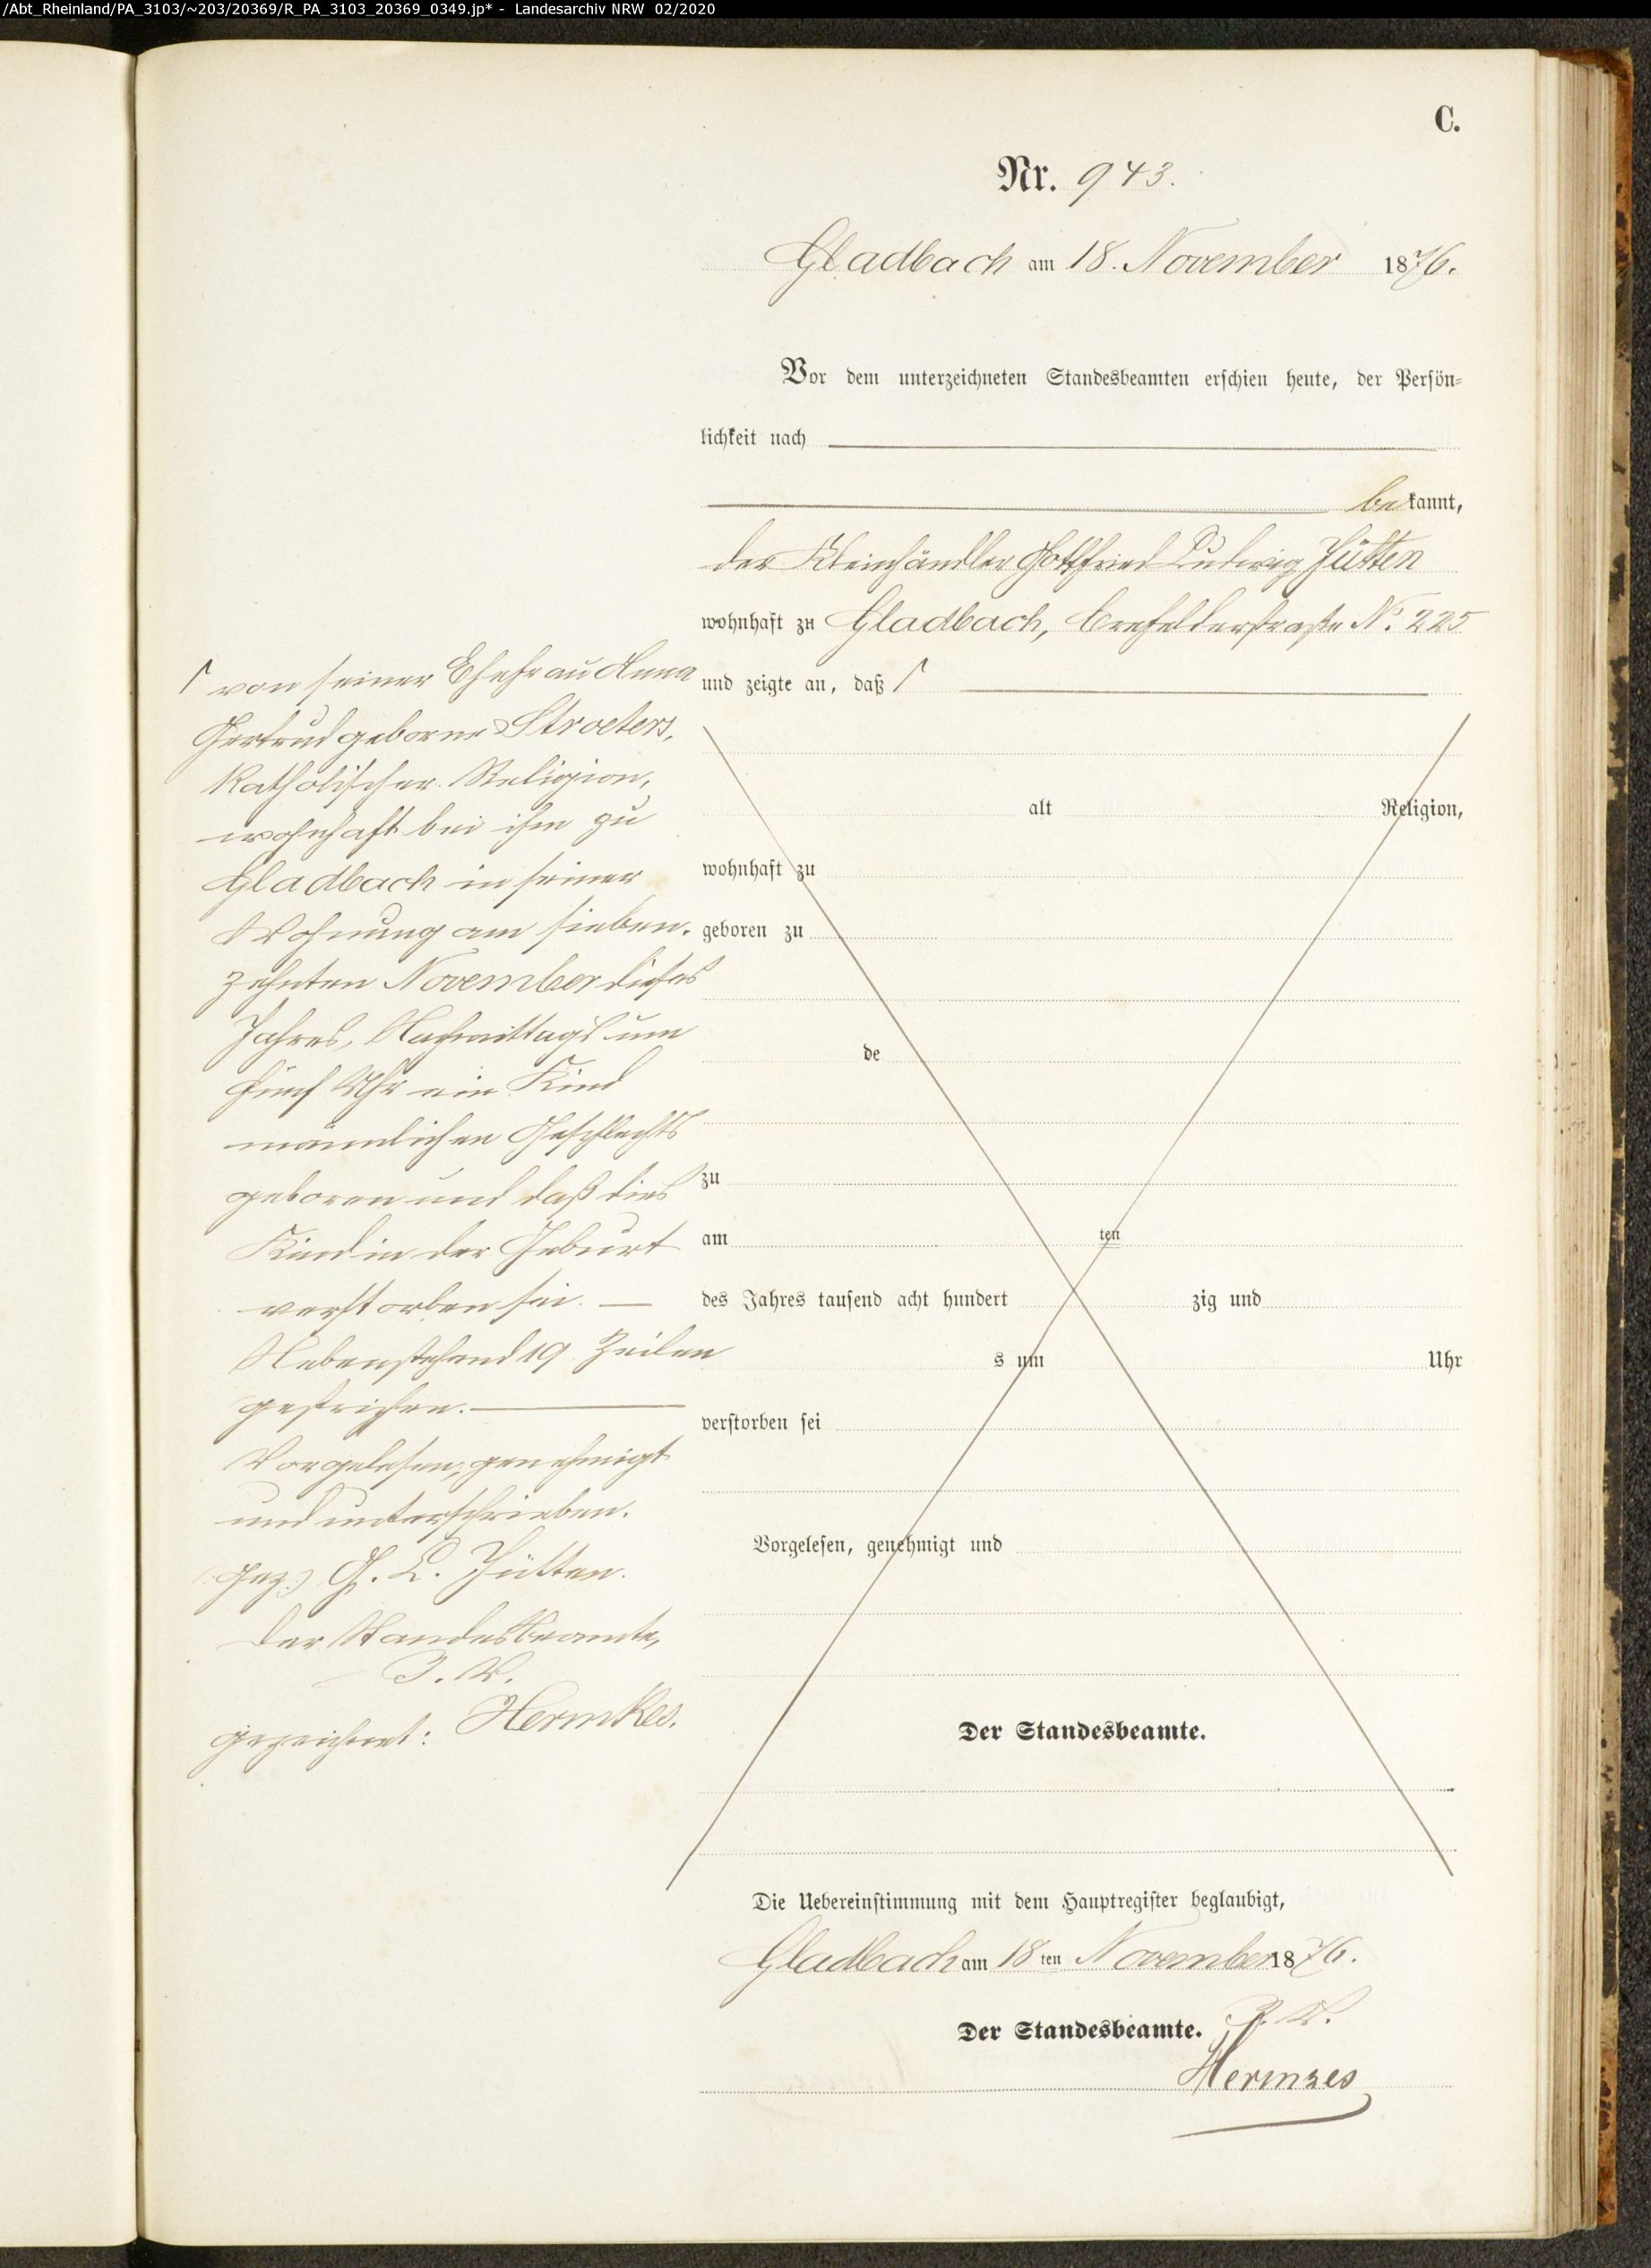 /Abt_Rheinland/PA_3103/~203/20369/R_PA_3103_20369_0349.jp* - Landesarchiv NRW 02/2020
C.
Nr. 943.
Gladbach am 18. November 1876.
Vor dem unterzeichneten Standesbeamten erschien heute, der Persön-
lichkeit nach
bekannt,
der Kleinhändler Gottfried Ludwig Hütten
wohnhaft zu Gladbach, Crefelderstraße No. 225
und zeigte an, daß ⌈
⌈ von seiner Ehefrau Anna
Gertrud geborne Stroeters,
katholischer Religion,
wohnhaft bei ihm zu
Gladbach in seiner
Wohnung am sieben-
zehnten November dieses
Jahres, Nachmittags um
fünf Uhr ein Kind
männlichen Geschlechts
geboren und daß dies
Kind in der Geburt
verstorben sei. —
Nebenstehend 19 Zeilen
gestrichen. —
Vorgelesen, genehmigt
und unterschrieben.
(:gez:) G. L. Hütten.
Der Standesbeamte,
I. V.
gezeichnet: Hermkes.
alt Religion,
wohnhaft zu
geboren zu
de
zu
am ten
des Jahres tausend acht hundert zig und
s um Uhr
verstorben sei
Vorgelesen, genehmigt und
Der Standesbeamte.
Die Uebereinstimmung mit dem Hauptregister beglaubigt,
Gladbach am 18 ten November 1876.
Der Standesbeamte. I. V.
Hermkes